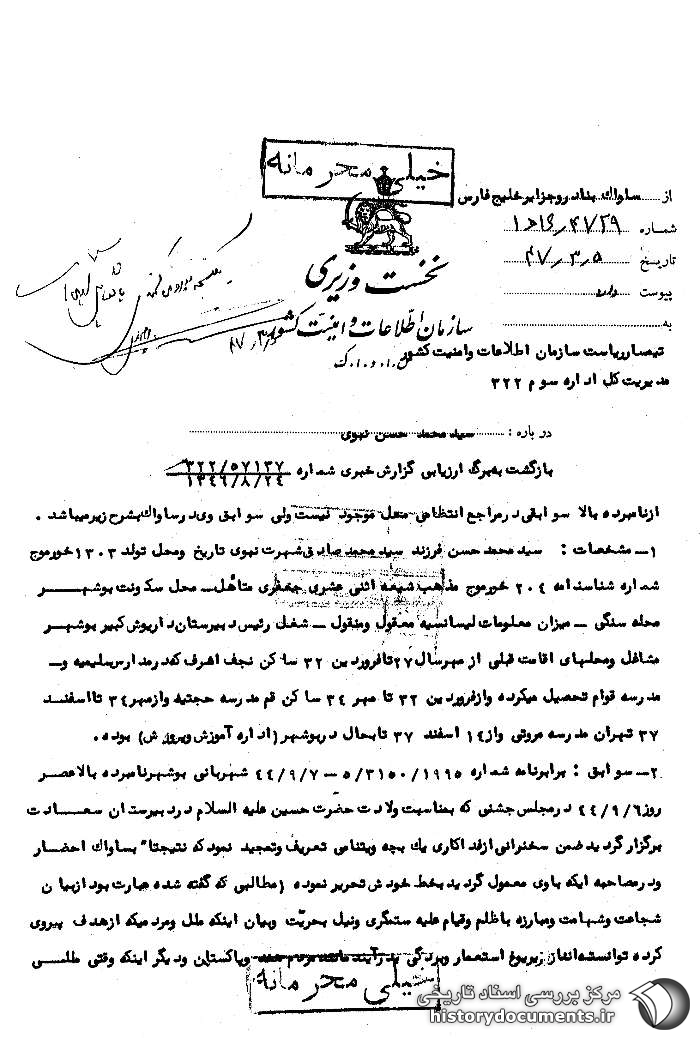 خیلی محرمانه
از ساواك بنادر و جزایر خلیج فارس
شماره ۴۷۲۹
تاریخ ۴۷٫۳٫۵
پیوست
به
نخست وزیری
سازمان اطلاعات و امنیت کشور
تیمسار ریاست سازمان اطلاعات و امنیت کشور
مدیریت کل اداره سوم ۳۲۲
درباره : سید محمد حسن نبوی
بازگشت به برگ ارزیابی گزارش خبری شماره ۳۲۲/۵۷۱۳۷
۱۳۴۶/۸/۲۴
از نامبرده بالا سوابقی در مراجع انتظامی محل موجود نیست ولی سوابق وی در ساواك بشرح زیر میباشد .
۱ــ مشخصات : سید محمد حسن فرزند سید محمد صادق شهرت نبوی تاریخ ومحل تولد ۱۳۰۳ خورموج
شماره شناسنامه ۲۰۴ خورموج مذهب شیعه اثنی عشری جعفری متاهل ــ محل سکونت بوشهر
محله سنگی ــ میزان معلومات لیسانسیه معقول ومنقول ــ شغل رئیس دبیرستان داریوش کبیر بوشهر
مشاغل ومحلهای اقامت قبلی از مهرسال ۲۷ تافروردین ۳۲ ساکن نجف اشرف که در مدارس سلیمیه و ــ
مدرسه قوام تحصیل میکرده وازفروردین ۳۲ تا مهر ۳۴ ساکن قم مدرسه حجتیه وازمهر ۳۴ تا اسفند
۳۷ تهران مدرسه مروتی واز ۱۴ اسفند ۳۷ تابحال در بوشهر (اداره آموزش وپرورش) بوده .
۲ــ سوابق : برابرنامه شماره ۵/۳۱۵۰/۱۹۹۵ ــ ۴۴/۹/۷ شهربانی بوشهر نامبرده بالا عصر
روز ۴۴/۹/۶ در مجلس جشنی که بمناسبت ولادت حضرت حسین علیه السلام در دبیرستان سعادت
برگزار گردید ضمن سخنرانی از فداکاری یك بچه ویتنامی تعریف وتمجید نمود که نتیجتا" بساواك احضار
ودر مصاحبه ایکه باوی معمول گردید بخط خودش تحریر نموده (مطالبی که گفته شده عبارت بود از بیان
شجاعت وشهامت ومبارزه باظلم وقیام علیه ستمگری ونیل بحریت وبیان اینکه ملل ومردمیکه ازهدف پیروی
کرده توانسته‌اند از زیر یوغ استعمار وبردگی بدرآیند مانند مردم هند وپاکستان ودیگر اینکه وقتی ملتی
خیلی محرمانه
مرکز بررسی اسناد تاریخی
historydocuments.ir